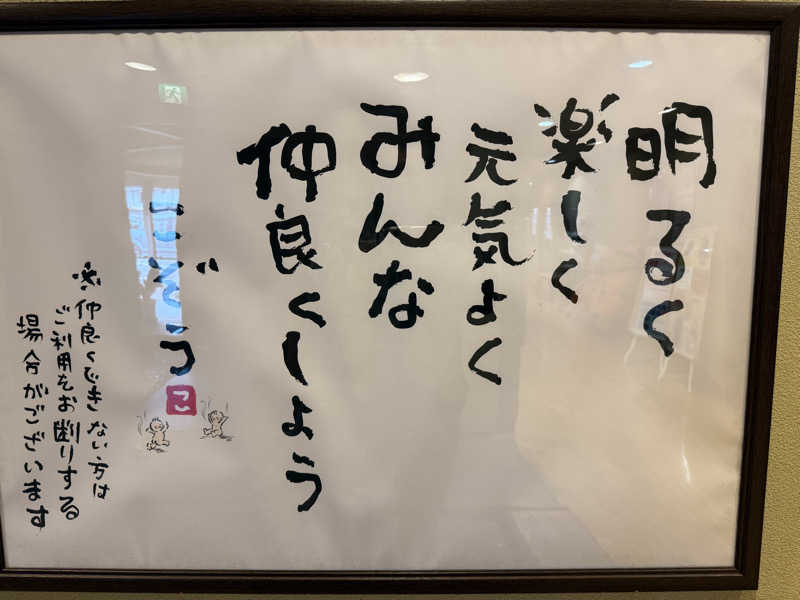 明るく
楽しく
元気よく
みんな
仲良くしよう
こぞう
※仲良くできない方は
ご利用をお断りする
場合がございます